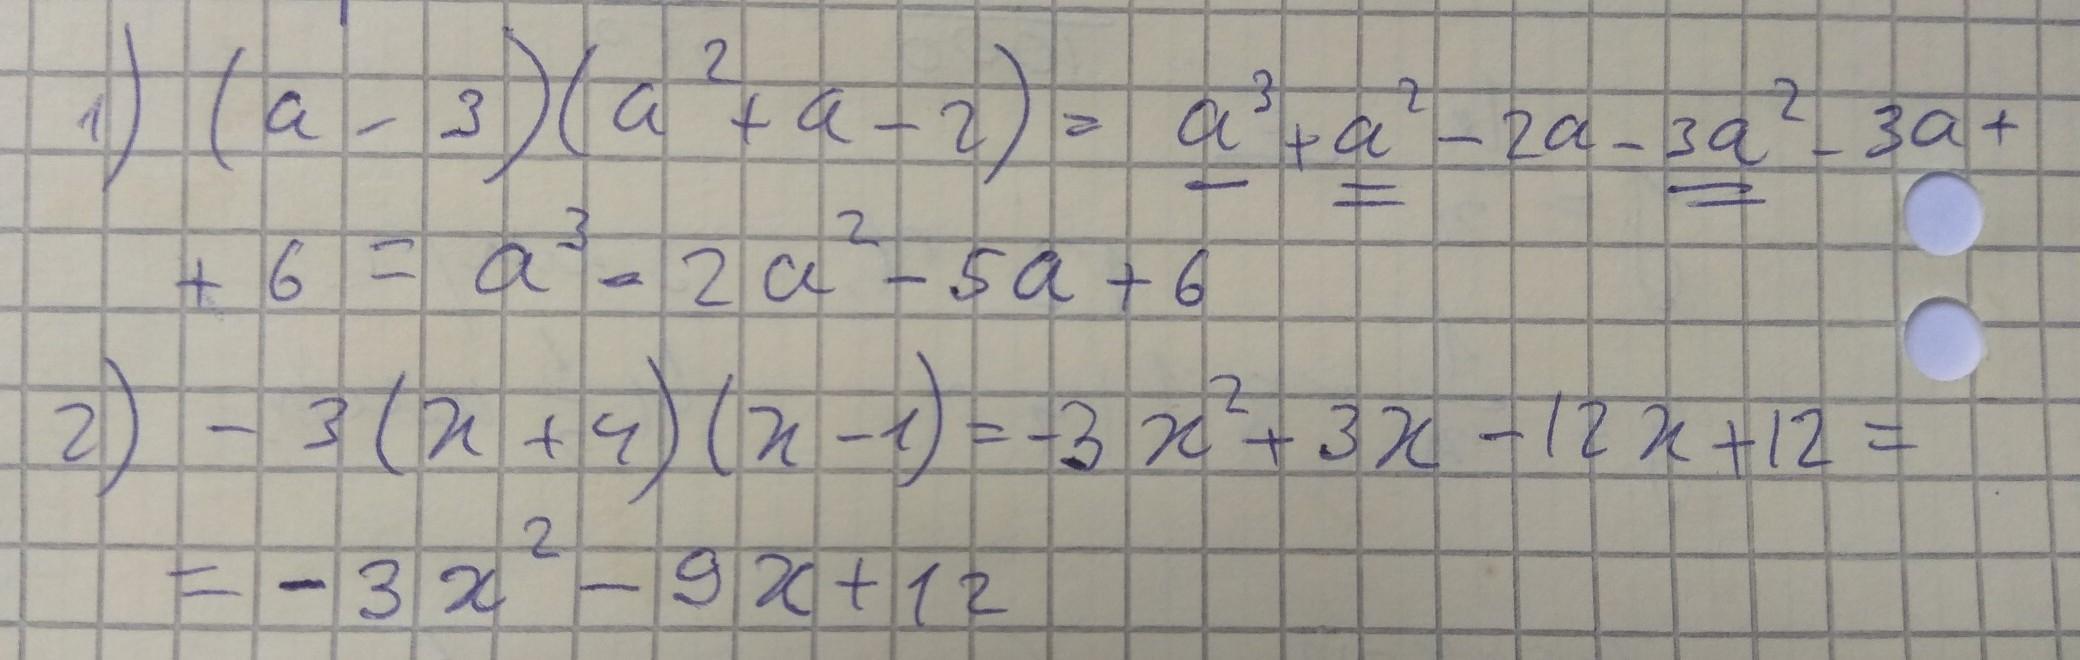 1) (a - 3)(a² + a - 2) = a³ + a² - 2a - 3a² - 3a +
+ 6 = a³ - 2a² - 5a + 6
2) - 3(x + 4)(x - 1) = -3x² + 3x - 12x + 12 =
= - 3x² - 9x + 12